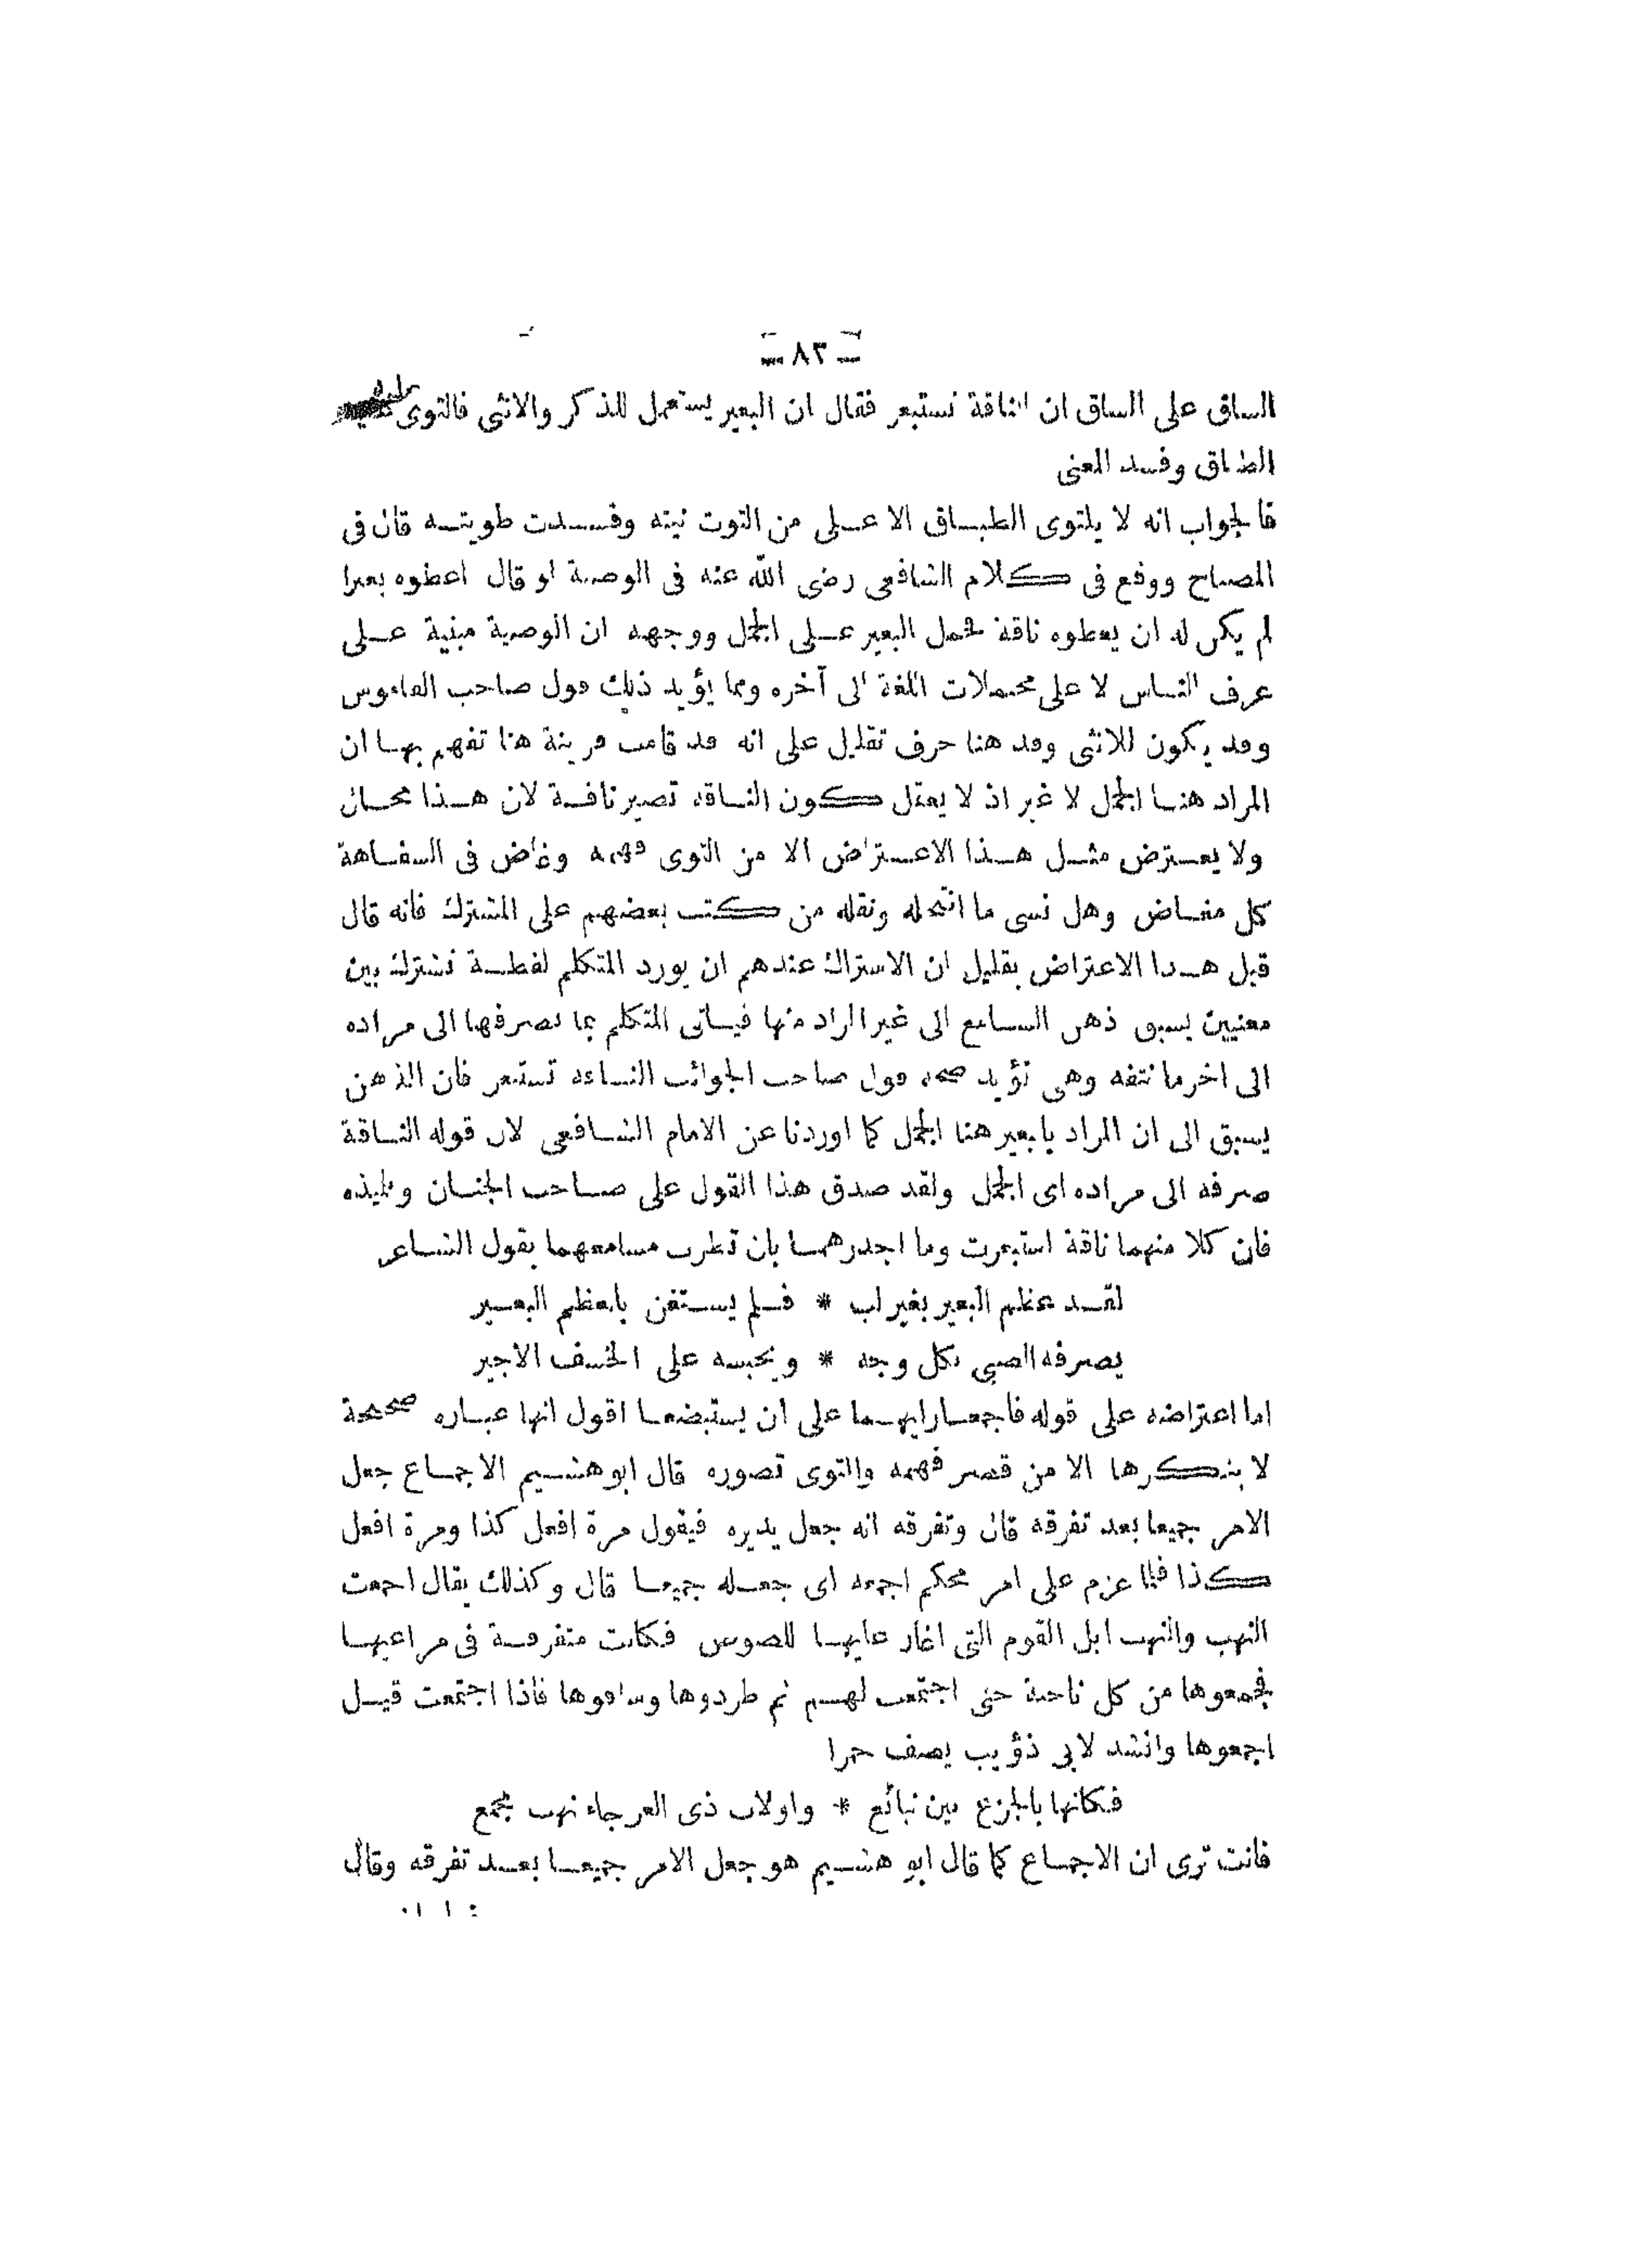 ٨٣
الساق على الساق ان الناقة تستبعر فقال ان البعير يستعمل للذكر والانثى فالتوى عليه
الطباق وفسد المعنى
فالجواب انه لا يلتوى الطباق الا على من التوت نيته وفسدت طويته قال فى
المصباح ووقع فى كلام الشافعى رضى الله عنه فى الوصية لو قال اعطوه بعيرا
لم يكن له ان يعطوه ناقة فحمل البعير على الجمل ووجهه ان الوصية مبنية على
عرف الناس لا على محتملات اللغة الى آخره ومما يؤيد ذلك قول صاحب القاموس
وقد يكون للانثى وقد هنا حرف تقليل على انه قد قامت قرينة هنا تفهم بها ان
المراد هنا الجمل لا غير اذ لا يعقل كون الناقة تصير ناقة لان هذا محال
ولا يعترض مثل هذا الاعتراض الا من التوى فهمه وغاض فى السفاهة
كل مغاض وهل نسى ما انتحله ونقله من كتب بعضهم على المشترك فانه قال
قبل هذا الاعتراض بقليل ان الاشتراك عندهم ان يورد المتكلم لفظة تشترك بين
معنيين يسبق ذهن السامع الى غير المراد منها فياتى المتكلم بما يصرفها الى مراده
الى اخر ما نتفه وهى تؤيد صحة قول صاحب الجوائب الناقة تستبعر فان الذهن
يسبق الى ان المراد بالبعير هنا الجمل كما اوردنا عن الامام الشافعى لان قوله الناقة
صرفه الى مراده اى الجمل ولقد صدق هذا القول على صاحب الجنان وتلميذه
فان كلا منهما ناقة استبعرت وما اجدرهما بان تطرب مسامعهما بقول الشاعر
لقد عظم البعير بغير لب * فلم يستغن بالعظم البعير
يصرفه الصبى بكل وجه * ويحبسه على الخسف الاجير
اما اعتراضه على قوله فاجمعا رايهما على ان يستبضعا اقول انها عباره صحيحة
لا ينكرها الا من قصر فهمه والتوى تصوره قال ابو هشيم الاجماع جعل
الامر جميعا بعد تفرقه قال وتفرقه انه جعل يديره فيقول مرة افعل كذا ومرة افعل
كذا فلما عزم على امر محكم اجمعه اى جعله جميعا قال وكذلك يقال اجمعت
النهب والنهب ابل القوم التى اغار عليها اللصوص فكانت متفرقة فى مراعيها
فجمعوها من كل ناحية حتى اجتمعت لهم ثم طردوها وساقوها فاذا اجتمعت قيل
اجمعوها وانشد لابى ذؤيب يصف حمرا
فكانها بالجزع بين نبائع * واولات ذى العرجاء نهب مجمع
فانت ترى ان الاجماع كما قال ابو هشيم هو جعل الامر جميعا بعد تفرقه وقال